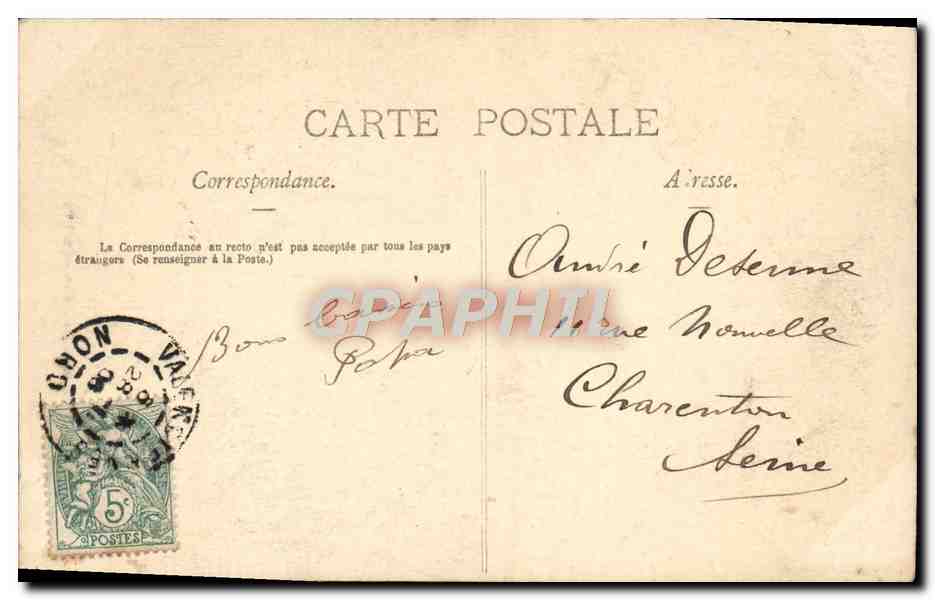 CARTE POSTALE
Correspondance.
La Correspondance au recto n'est pas acceptée par tous les pays
étrangers (Se renseigner à la Poste.)
Bons baisers
Papa
Adresse.
André Desenne
Rue Nouvelle
Charenton
Seine
NORD
5c
POSTES
CPAPHIL